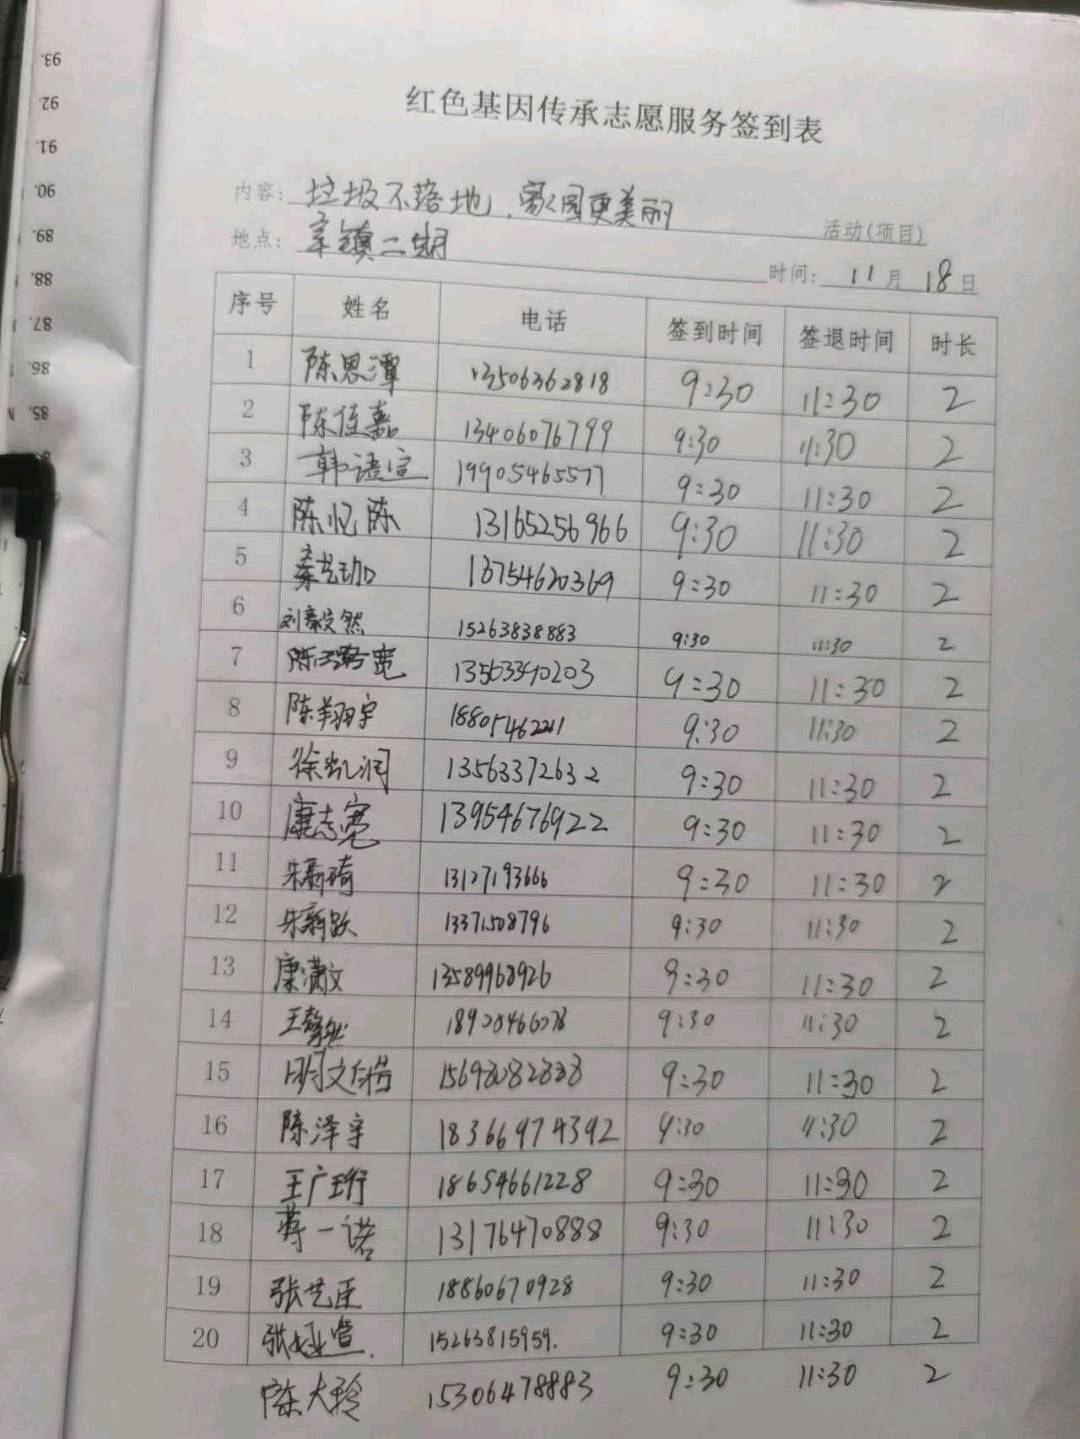 93.
92.
91.
90.
89.
88.
87.
86.
85.
红色基因传承志愿服务签到表
内容: 垃圾不落地，家园更美丽 活动(项目)
地点: 辛镇二期 时间: 11月18日
序号 姓名 电话 签到时间 签退时间 时长
1 陈恩潭 13506362818 9:30 11:30 2
2 陈佳嘉 13406076799 9:30 11:30 2
3 韩语宣 19905465577 9:30 11:30 2
4 陈忆陈 13165256966 9:30 11:30 2
5 秦艺珈 13754620369 9:30 11:30 2
6 刘毅然 15263838883 9:30 11:30 2
7 13563340203 9:30 11:30 2
8 陈翔宇 18805462211 9:30 11:30 2
9 徐凯润 13563372632 9:30 11:30 2
10 康志宽 13954676922 9:30 11:30 2
11 朱新琦 13127193666 9:30 11:30 2
12 朱新跃 13371508796 9:30 11:30 2
13 康潇文 13589968926 9:30 11:30 2
14 王馨然 9:30 11:30 2
15 明文皓 9:30 11:30 2
16 陈泽宇 18366974392 9:30 11:30 2
17 王广珩 18654661228 9:30 11:30 2
18 蒋一诺 13176470888 9:30 11:30 2
19 张艺臣 18860670928 9:30 11:30 2
20 15263815959. 9:30 11:30 2
陈大玲 15306478883 9:30 11:30 2